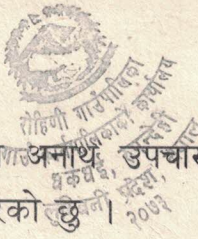 रोहिणी गाउँपालिका
गाउँ कार्यपालिकाको कार्यालय
धकधई, रुपन्देही
लुम्बिनी प्रदेश,
२०७३
अनाथ उपचार
रको छु ।